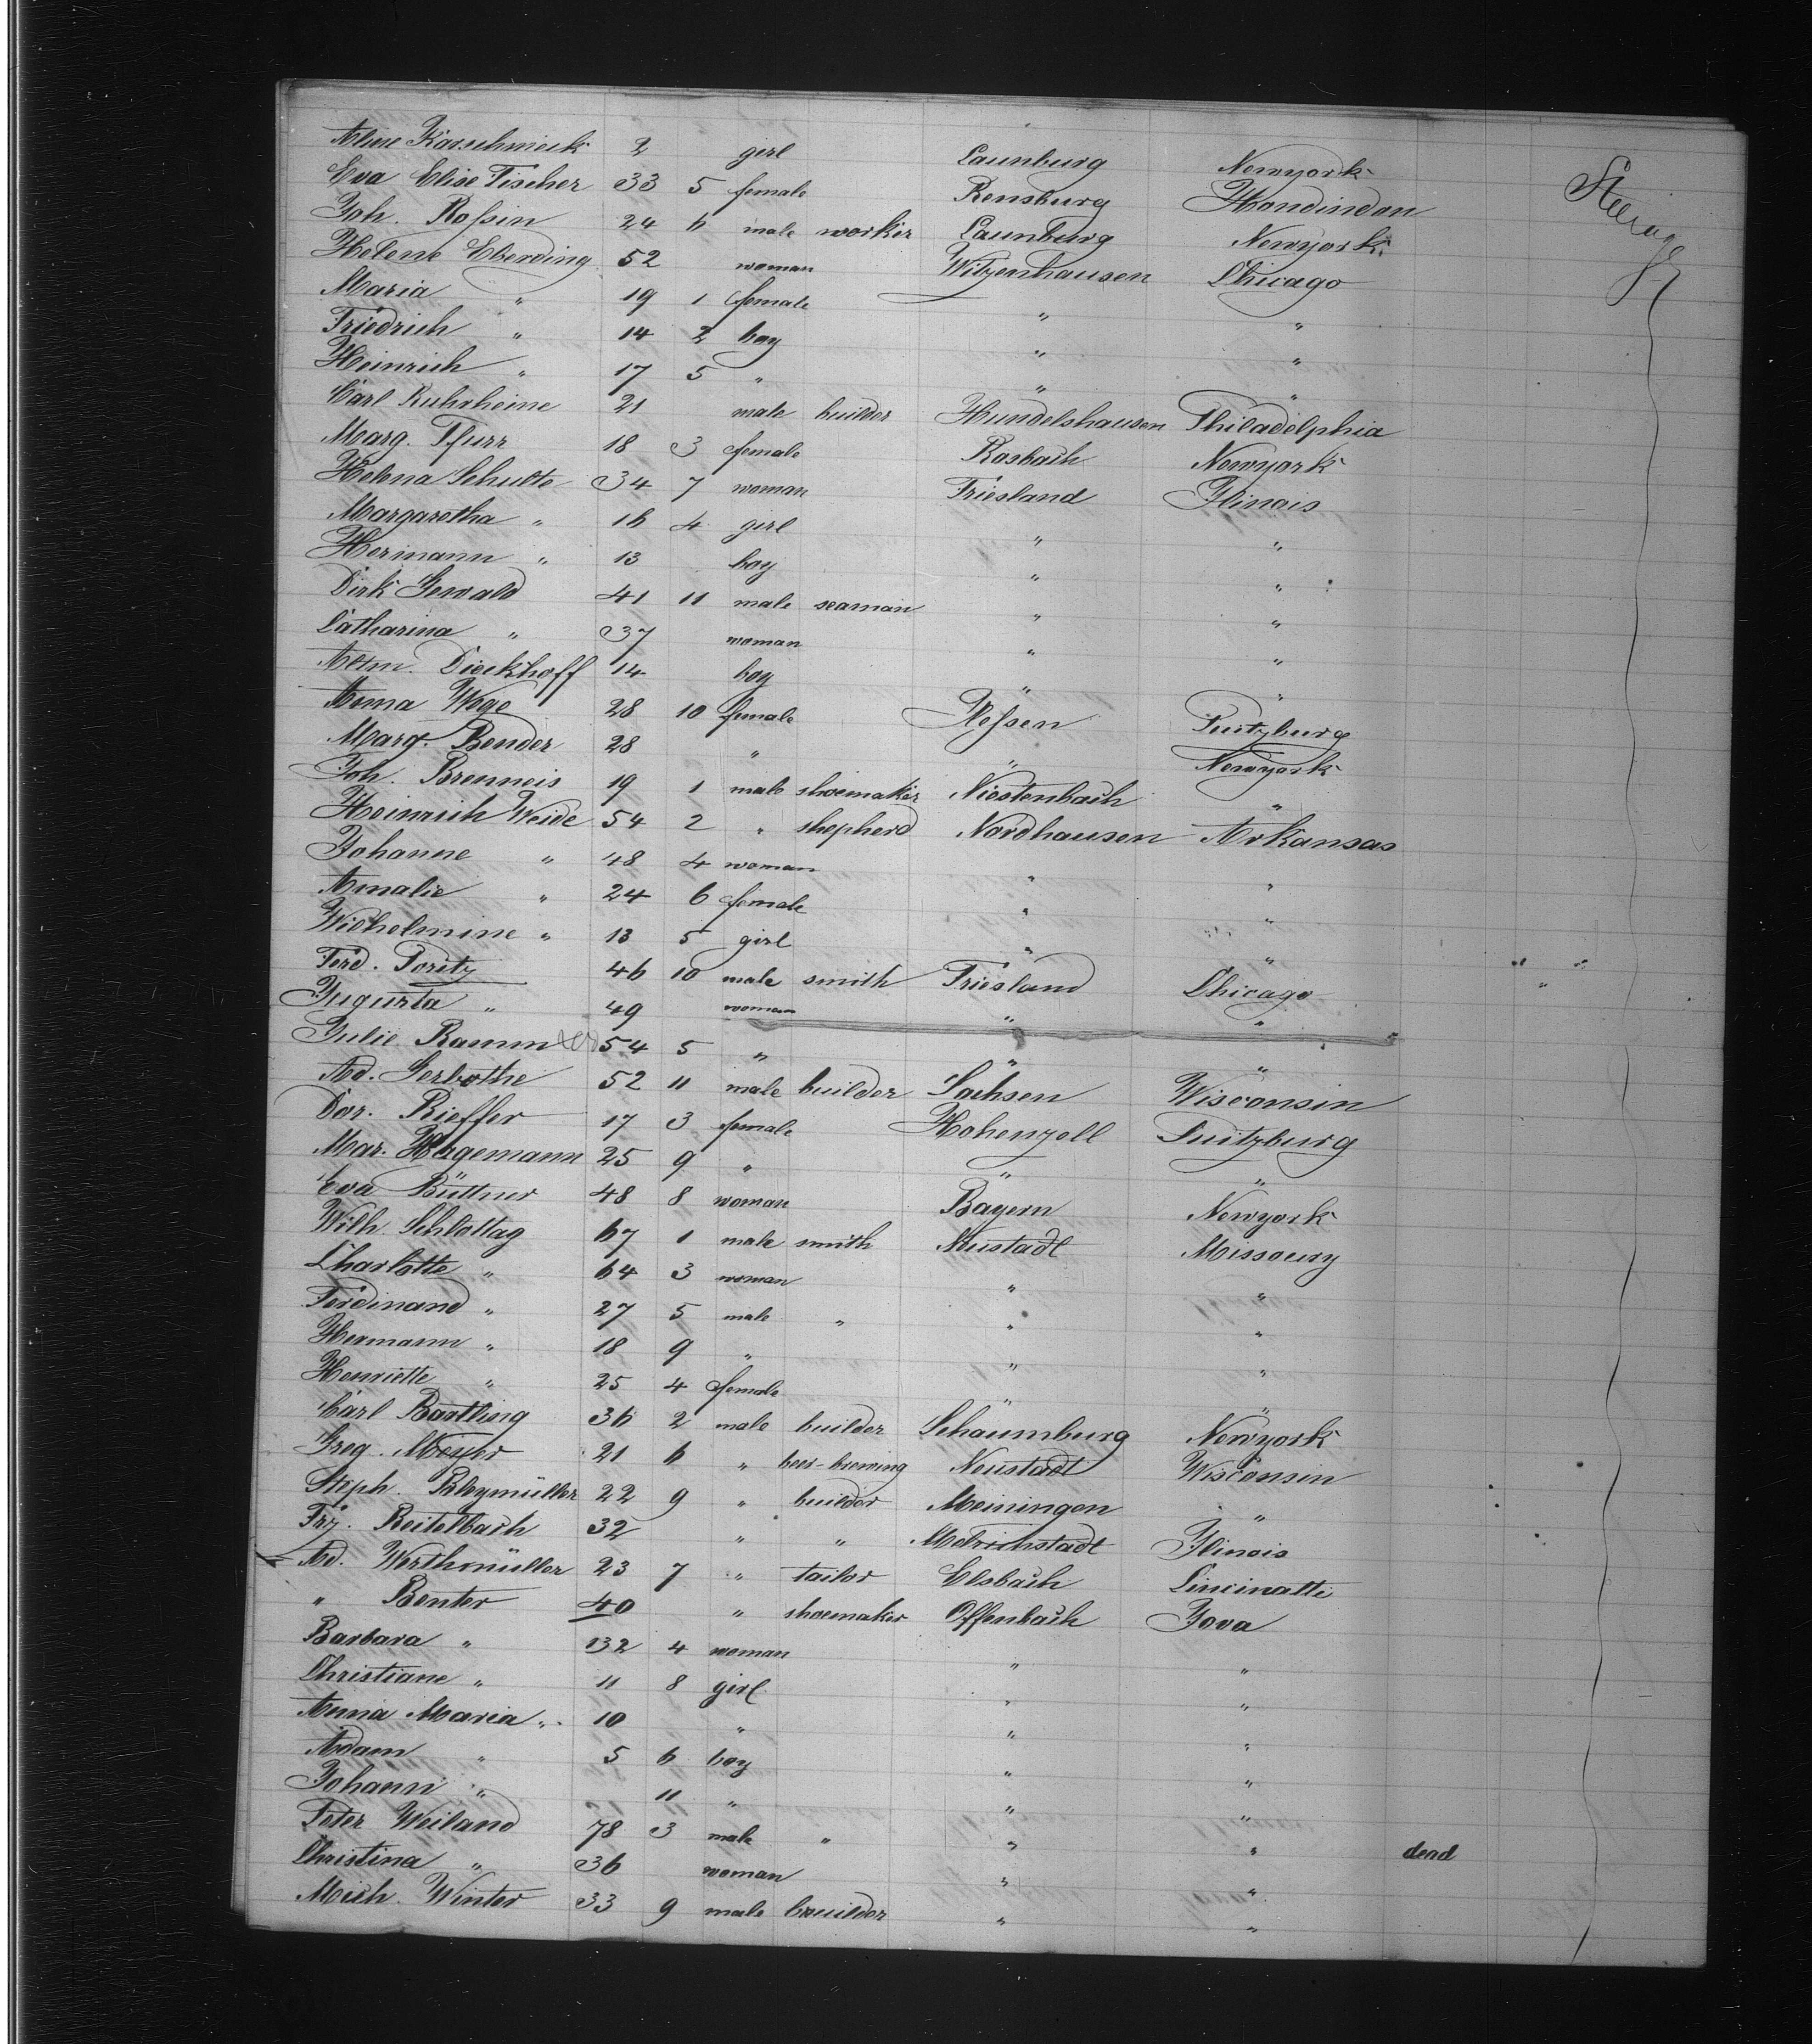 Aline Karschmieck 2 girl Launburg Newyork Steerage
Eva Elise Fischer 33 5 female Rensburg Hondindon
Joh. Roßin 24 6 male worker Launburg Newyork
Helene Eberding 52 woman Witzenhausen Chicago
Maria " 19 1 female " "
Friedrich " 14 2 boy " "
Heinrich " 17 5 " " "
Carl Ruhrheine 21 male builder Hundelshausen Philadelphia
Marg. Pfurr 18 3 female Rosbach Newyork
Helena Schulte 34 7 woman Friesland Ilinois
Margaretha " 16 4 girl " "
Hermann " 13 boy " "
Dirk Gewald 41 11 male seaman " "
Catharina " 37 woman " "
Alm. Dieckhoff 14 boy " "
Anna Wege 28 10 female Heßen Puitzburg
Marg. Bender 28 " " Newyork
Joh. Brenneis 19 1 male shoemaker Niestenbach "
Heinrich Weide 54 2 " shepherd Nordhausen Arkansas
Johanne " 48 4 woman " "
Amalie " 24 6 female " "
Wilhelmine " 13 5 girl " "
Ferd. Poritz 46 10 male smith Friesland Chicago
Jugurta " 49 woman " "
Julie Ramm 54 5 " " "
Ad. Gerbothe 52 11 male builder Sachsen Wisconsin
Dor. Rieffer 17 3 female Hohenzell Puitzburg
Mar. Hagemann 25 9 " " "
Eva Büttner 48 8 woman Bayern Newyork
Wilh. Schlottag 67 1 male smith Neustadt Missoury
Charlotte " 64 3 woman " "
Ferdinand " 27 5 male " " "
Hermann " 18 9 " " "
Henriette " 25 4 female " "
Carl Bartling 36 2 male builder Schaumburg Newyork
Greg. Meyer 21 6 " beer-brewing Neustadt Wisconsin
Steph. Rhymüller 22 9 " builder Meiningen "
Frz. Reitelbach 32 " " Melrichstadt Ilinois
Ad. Werthmüller 23 7 " tailor Elsbach Cincinatti
" Benter 40 " shoemaker Offenbach Iova
Barbara " 32 4 woman " "
Christiane " 11 8 girl " "
Anna Maria " 10 " " "
Adam " 5 6 boy " "
Johann " 11 " " "
Peter Weiland 78 3 male " " " dead
Christina " 36 woman " "
Mich. Winter 33 9 male builder " "